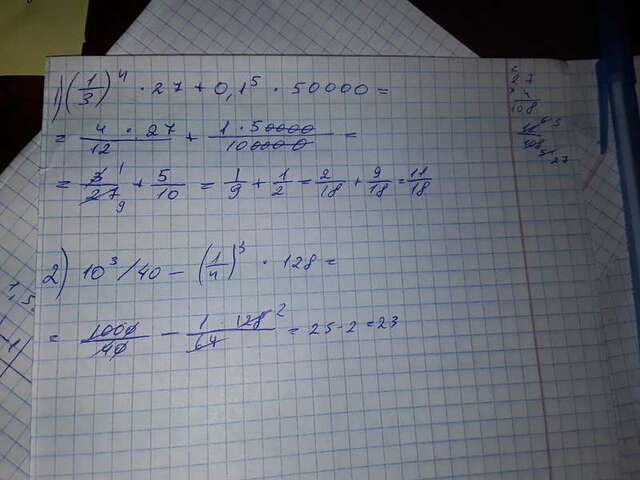 1) (1/3)^4 · 27 + 0,1^5 · 50000 =
= 4 · 27/12 + 1 · 50000/100000 =
= 3 1/27 9 + 5/10 = 1/9 + 1/2 = 2/18 + 9/18 = 11/18
2) 10^3/40 − (1/4)^3 · 128 =
= 1000/40 − 1 · 128 2/64 = 25 - 2 = 23
27
4
108
27